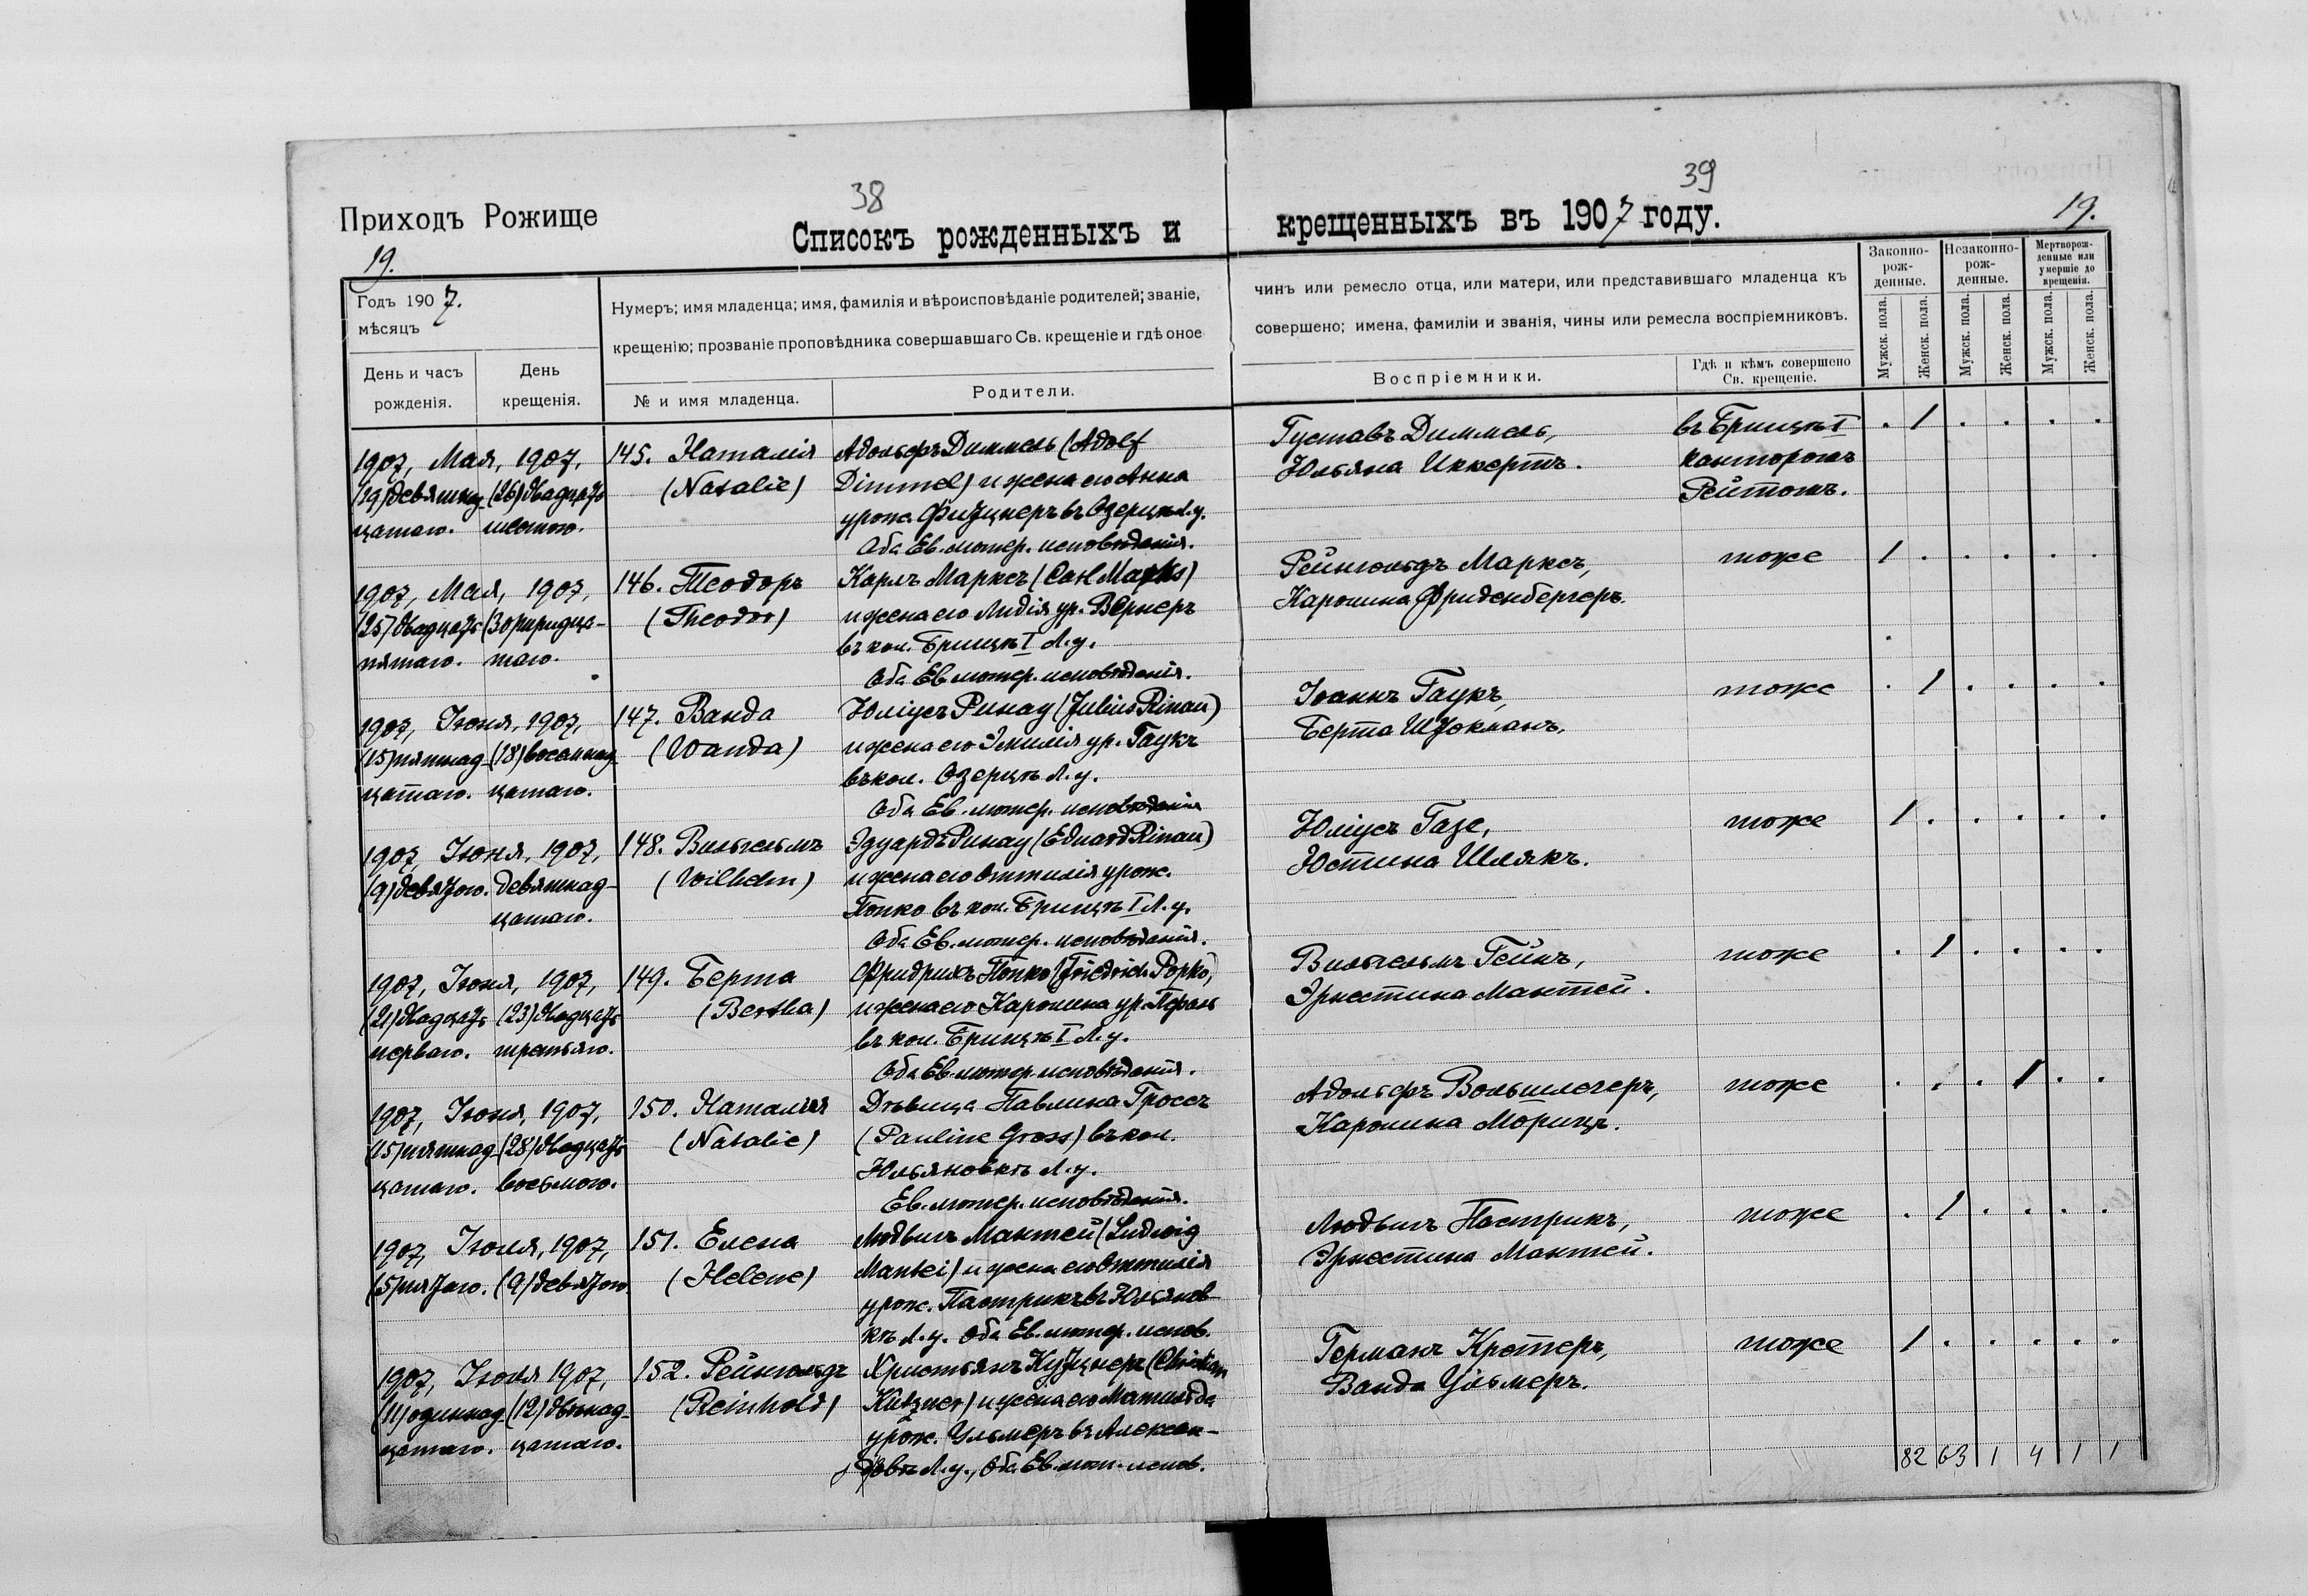 38
39
Приходъ Рожище
Списокъ рожденныхъ и крещенныхъ въ 1907 году.
19.
19.
Годъ 1907.
мѣсяцъ
День и часъ рожденія.
День крещенія.
Нумеръ; имя младенца; имя, фамилія и вѣроисповѣданіе родителей; званіе,
крещенію; прозваніе проповѣдника совершавшаго Св. крещеніе и гдѣ оное
№ и имя младенца.
Родители.
чинъ или ремесло отца, или матери, или представившаго младенца къ
совершено; имена, фамиліи и званія, чины или ремесла воспріемниковъ.
Воспріемники.
Гдѣ и кѣмъ совершено
Св. крещеніе.
Законно-
рож-
денные.
Незаконно-
рож-
денные.
Мертворож-
денные или
умершіе до
крещенія.
Мужск. пола.
Женск. пола.
Мужск. пола.
Женск. пола.
Мужск. пола.
Женск. пола.
1907, Мая, 1907,
(19) девятнад- (26) двадцать
цатаго. шестого.
145. Наталія
(Natalie)
Адольфъ Диммель (Adolf
Dimmel) и жена его Анна
урож. Фитцнеръ въ Озерцѣ Л.у.
Оба Ев.-лютер. исповѣданія.
Густавъ Диммель,
Юльяна Иккертъ.
въ Брищѣ I
канторомъ
Рейтомъ.
1
1907, Мая, 1907,
(25) двадцать (30) тридца-
пятаго. таго.
146. Теодоръ
(Theodor)
Карлъ Марксъ (Carl Marks)
и жена его Лидія ур. Вернеръ
въ кол. Брищѣ I Л.у.
Оба Ев.-лютер. исповѣданія.
Рейнгольдъ Марксъ,
Каролина Фриденбергеръ.
тоже
1
1907, Іюня, 1907,
(15) пятнад- (18) восемнад-
цатаго. цатаго.
147. Ванда
(Wanda)
Юліусъ Ринау (Julius Rinau)
и жена его Эмилія ур. Гаукъ
въ кол. Озерцѣ Л.у.
Оба Ев.-лютер. исповѣданія
Іоаннъ Гаукъ,
Берта Штокманъ.
тоже
1
1907, Іюня, 1907,
(9) девятого. девятнад-
цатаго.
148. Вильгельмъ
(Wilhelm)
Эдуардъ Ринау (Eduard Rinau)
и жена его Оттилія урож.
Попко въ кол. Брищѣ I Л.у.
Оба Ев.-лютер. исповѣданія.
Юліусъ Газе,
Юстина Шлякъ.
тоже
1
1907, Іюня, 1907,
(21) двадцать (23) двадцать
перваго. третьяго.
149. Берта
(Bertha)
Фридрихъ Попко (Friedrich Popko)
и жена его Каролина ур. Пфаль
въ кол. Брищѣ I Л.у.
Оба Ев.-лютер. исповѣданія.
Вильгельмъ Гейнъ,
Эрнестина Мантей.
тоже
1
1907, Іюня, 1907,
(15) пятнад- (28) двадцать
цатаго. восьмого.
150. Наталія
(Natalie)
Дѣвица Павлина Гроссъ
(Pauline Gross) въ кол.
Юльяновкѣ Л.у.
Ев.-лютер. исповѣданія.
Адольфъ Вольшлегеръ,
Каролина Морицъ.
тоже
1
1907, Іюля, 1907,
(5) пятаго. (9) девятого
151. Елена
(Helene)
Людвигъ Мантей (Ludwig
Mantei) и жена его Оттилія
урож. Пастрикъ въ Юльянов-
кѣ Л.у. Оба Ев.-лютер. испов.
Людвигъ Пастрикъ,
Эрнестина Мантей.
тоже
1
1907, Іюля 1907,
(11) одиннад- (12) двѣнад-
цатаго. цатаго.
152. Рейнгольдъ
(Reinhold)
Христьянъ Кутцнеръ (Christian
Kutzner) и жена его Матильда
урож. Ульмеръ въ Алексан-
дровкѣ Л.у., Оба Ев.-лют. испов.
Германъ Кретеръ,
Ванда Ульмеръ.
тоже
1
82 63 1 4 1 1